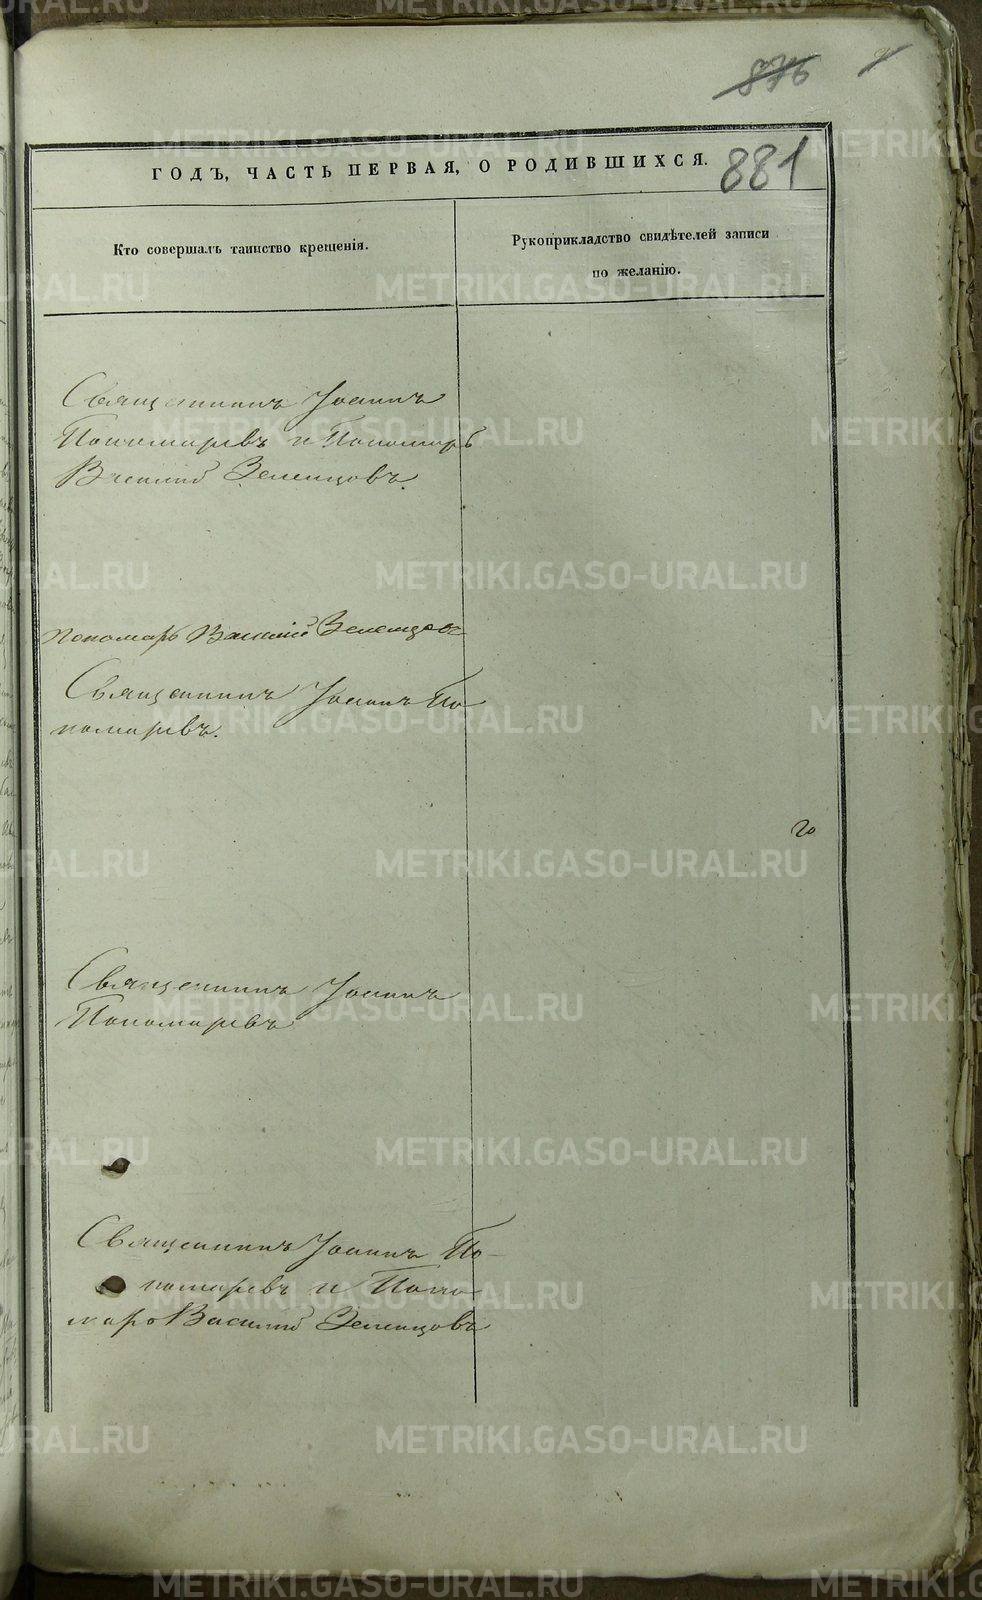 876
881
ГОДЪ, ЧАСТЬ ПЕРВАЯ, О РОДИВШИХСЯ.
Кто совершалъ таинство крещенія.
Рукоприкладство свидѣтелей записи
по желанію.
Священникъ Іоаннъ
Пономаревъ и Пономарь
Василій Зеленцовъ.
Пономарь Василій Зеленцовъ
Священникъ Іоаннъ По
номаревъ.
го
Священникъ Іоаннъ
Пономаревъ
Священникъ Іоаннъ По-
номаревъ и Поно
марь Василій Зеленцовъ
METRIKI.GASO-URAL.RU